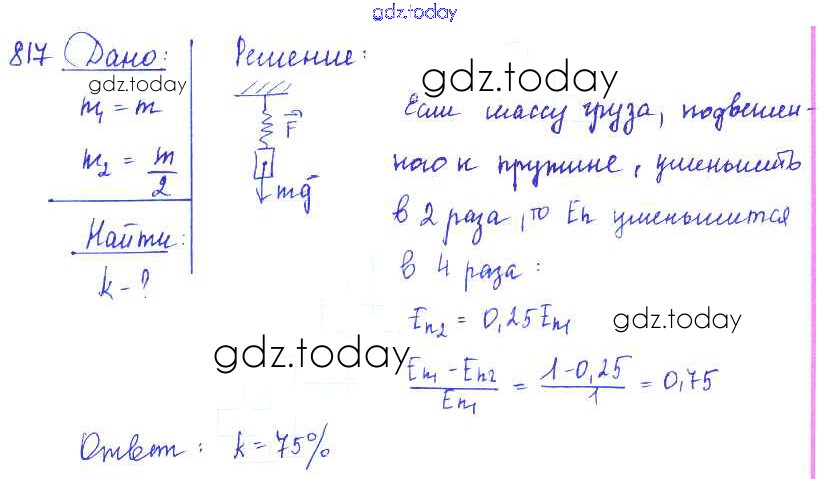 gdz.today
817 Дано:
gdz.today
m₁ = m
m₂ = m/2
Найти:
k - ?
Решение:
F
mg
gdz.today
Если массу груза, подвешен-
ного к пружине, уменьшить
в 2 раза, то Eп уменьшится
в 4 раза:
Eп₂ = 0,25Eп₁
gdz.today
gdz.today
(Eп₁ - Eп₂)/Eп₁ = (1-0,25)/1 = 0,75
Ответ: k = 75%